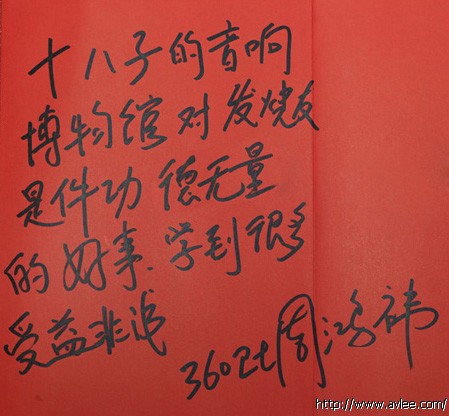 十八子的音响
博物馆对发烧友
是件功德无量
的好事、学到很多
受益非浅
360 周鸿祎
http://www.avlee.com